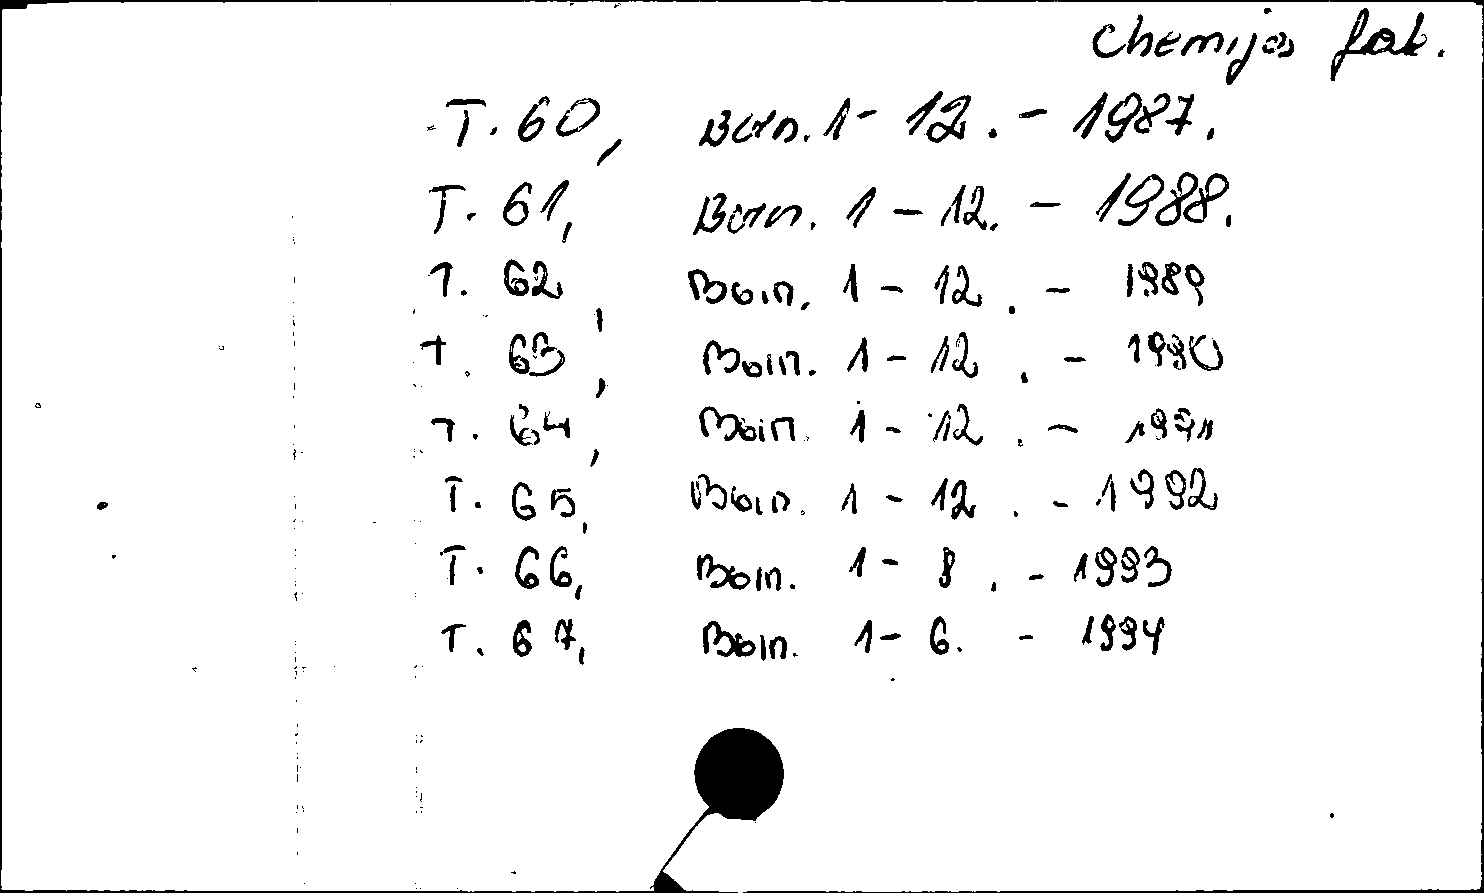 Chemijos fak.
Т. 60, Вып. 1 - 12. - 1987.
Т. 61, Вып. 1 - 12. - 1988.
Т. 62, Вып. 1 - 12. - 1989
Т. 63, Вып. 1 - 12. - 1990
Т. 64, Вып. 1 - 12. - 1991
Т. 65, Вып. 1 - 12. - 1992
Т. 66, Вып. 1 - 8. - 1993
Т. 67, Вып. 1 - 6. - 1994